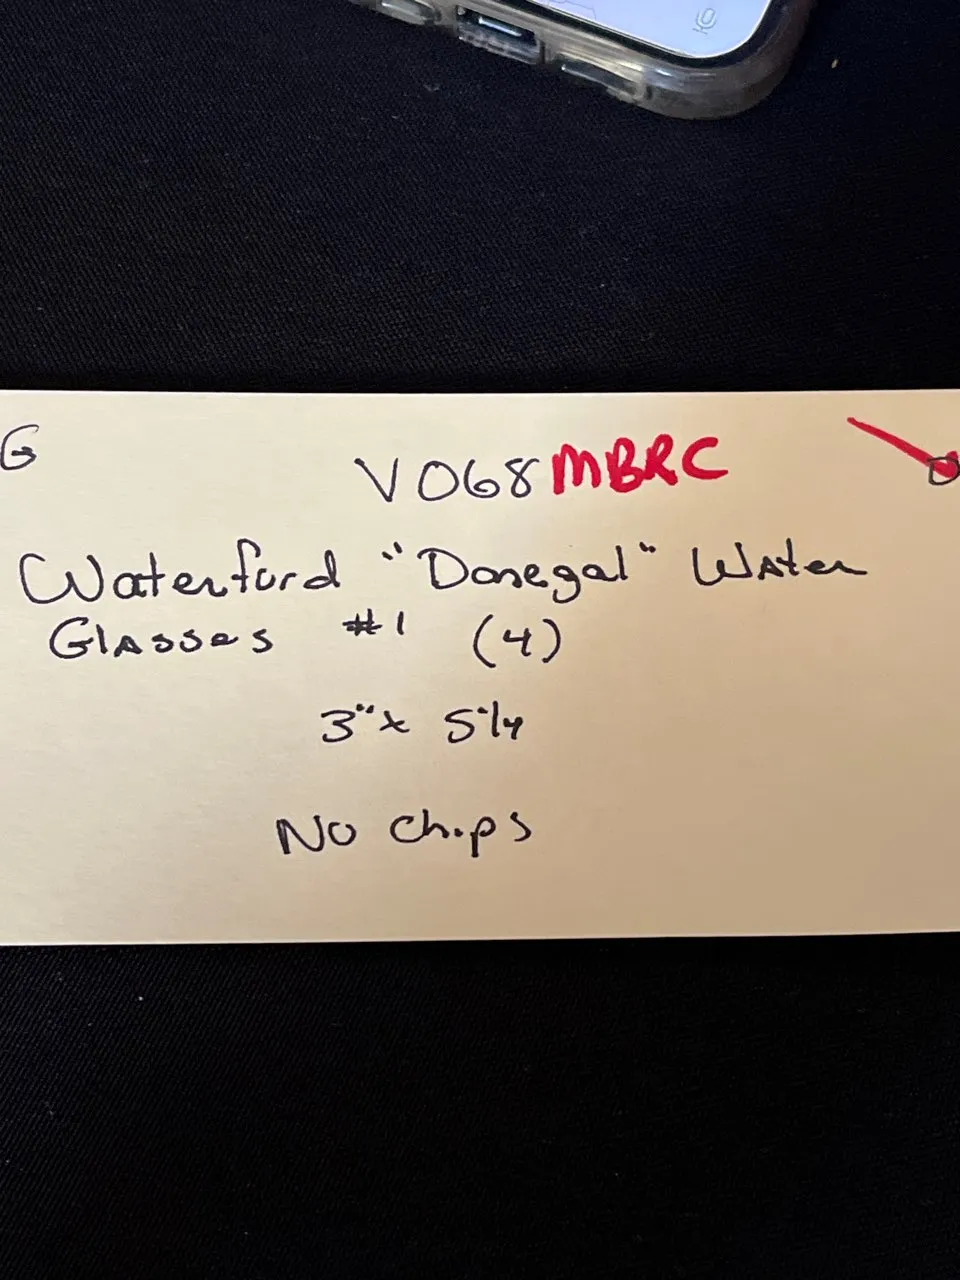 G
V068 MBRC
Waterford "Donegal" Water
Glasses #1 (4)
3" x 5 1/4
No chips